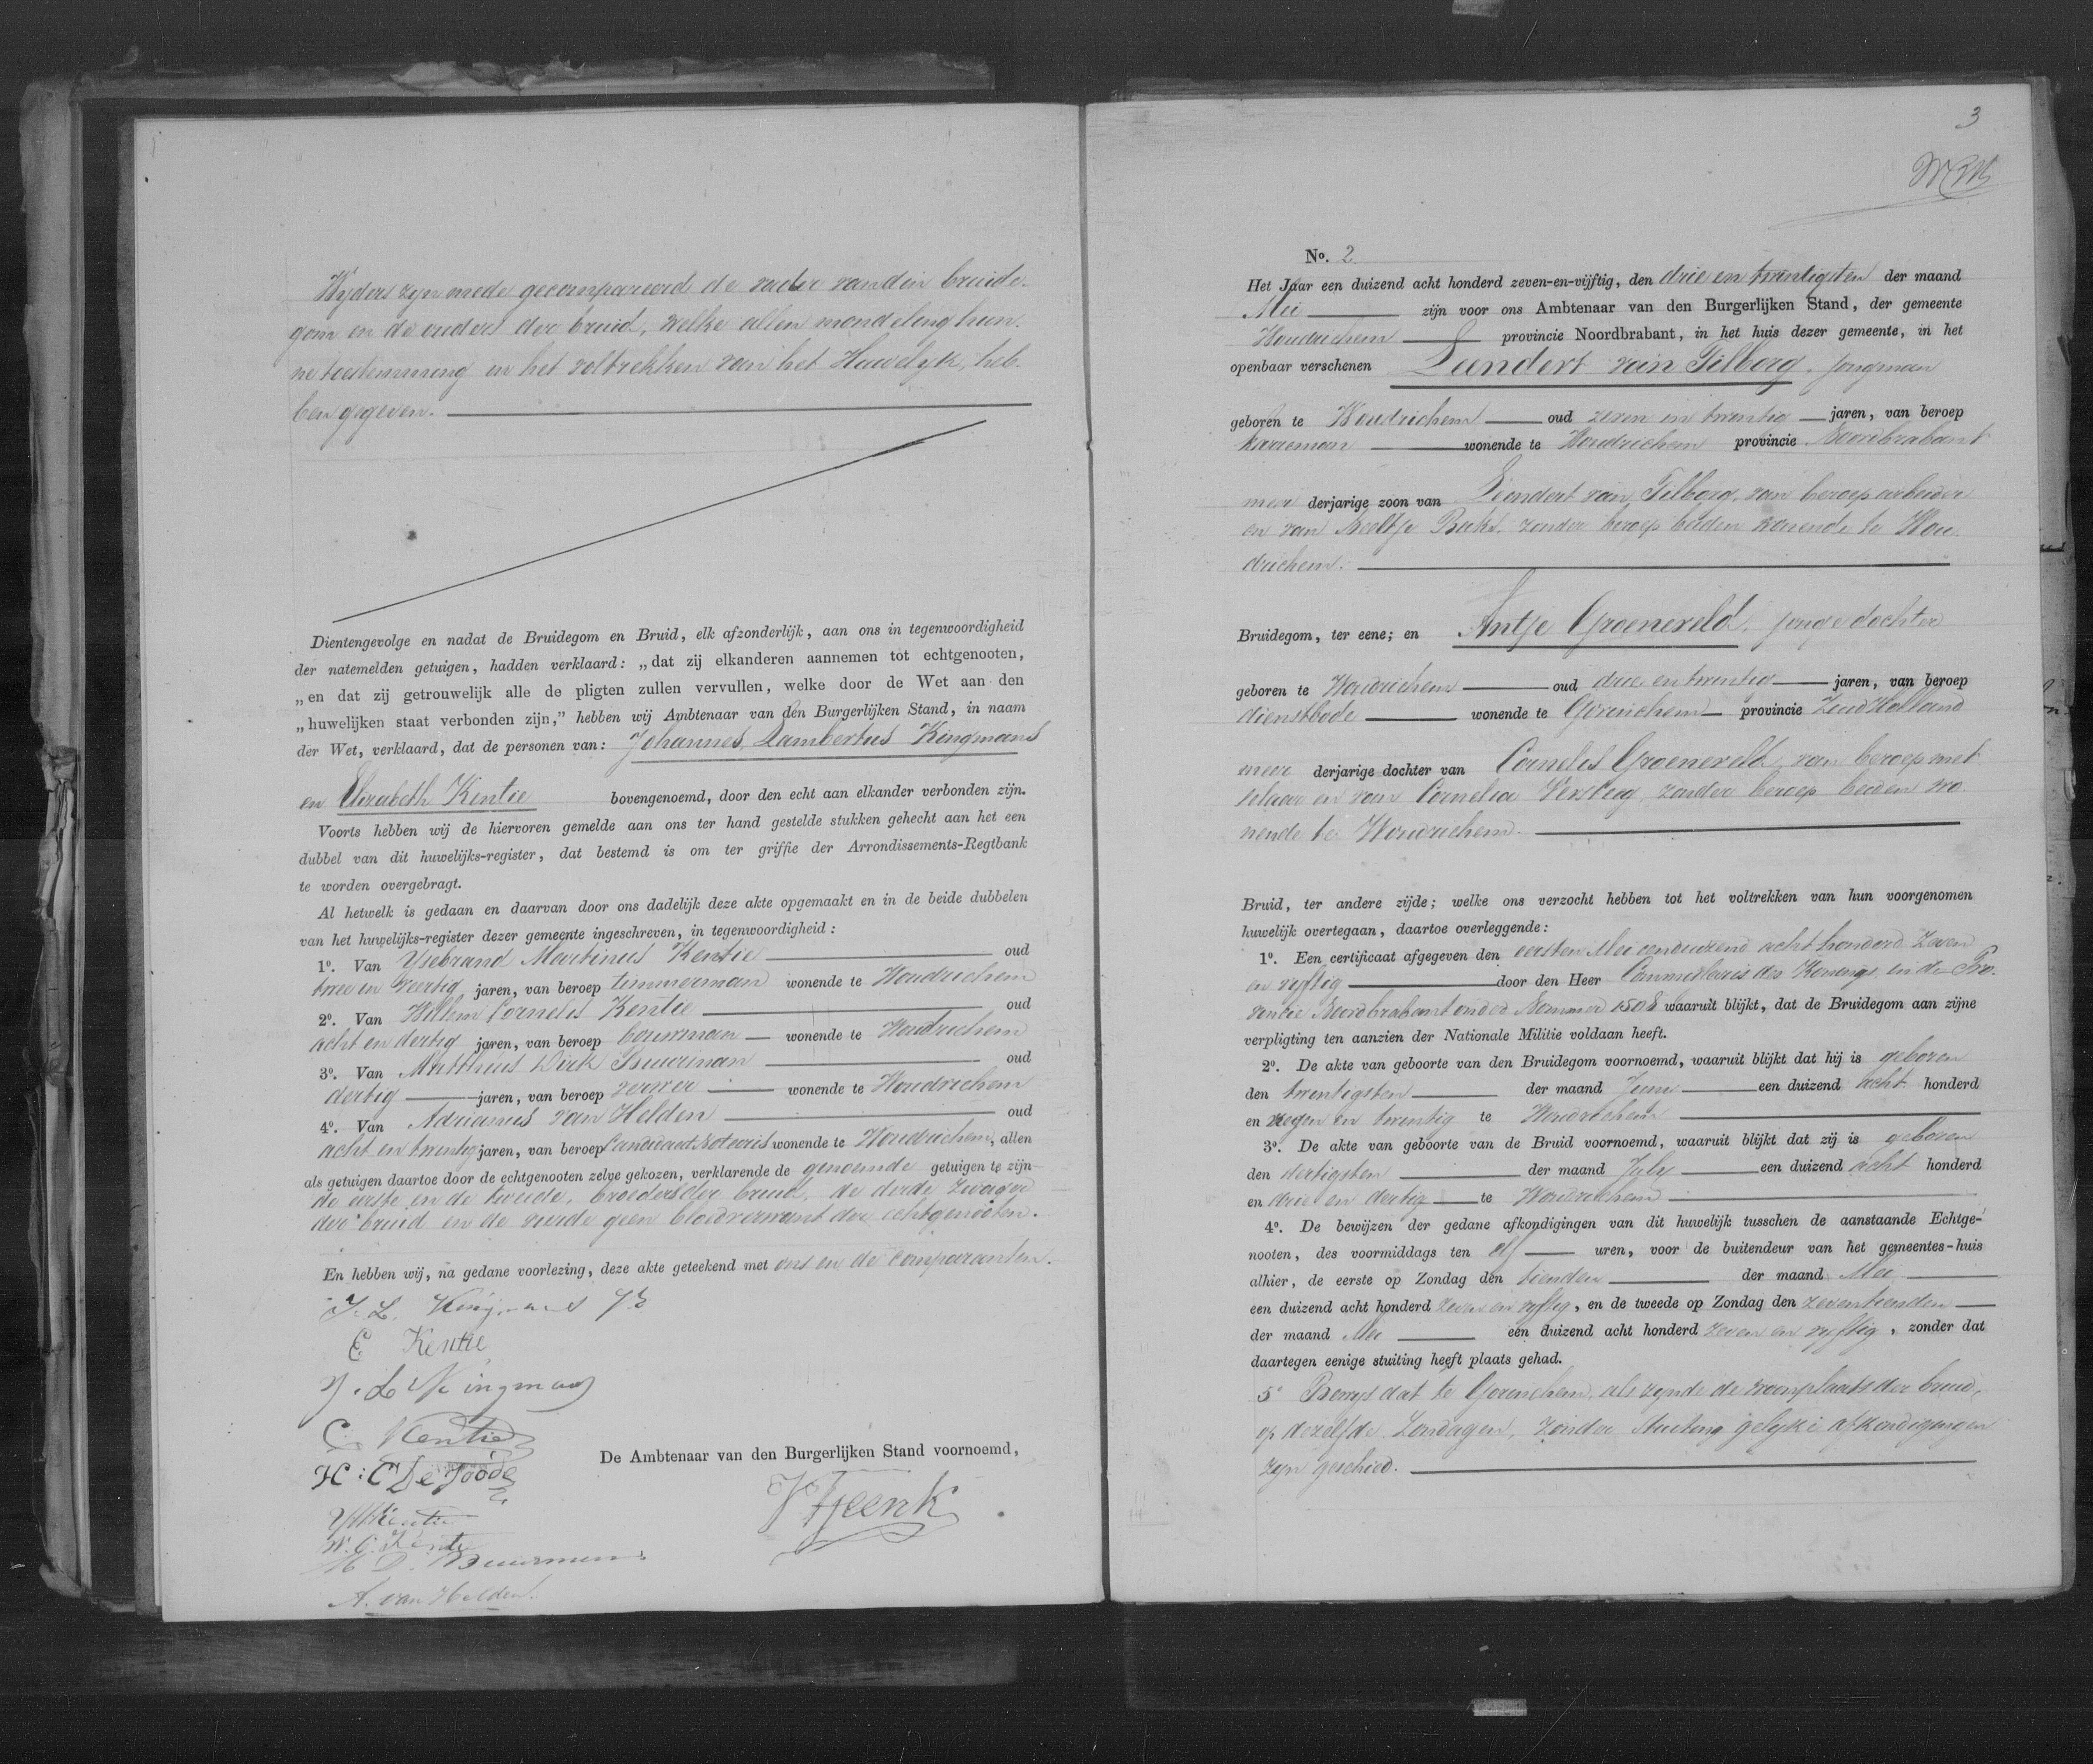 Wijders zijn mede gecompareerd de vader van den bruide-
gom en de ouders der bruid, welke allen mondeling hun-
ne toestemming in het voltrekken van het Huwelijk, heb-
ben gegeven.
Dientengevolge en nadat de Bruidegom en Bruid, elk afzonderlijk, aan ons in tegenwoordigheid
der natemelden getuigen, hadden verklaard: „dat zij elkanderen aannemen tot echtgenooten,
„en dat zij getrouwelijk alle de pligten zullen vervullen, welke door de Wet aan den
„huwelijken staat verbonden zijn,” hebben wij Ambtenaar van den Burgerlijken Stand, in naam
der Wet, verklaard, dat de personen van: Johannes Lambertus Kingmans
en Elizabeth Kentie bovengenoemd, door den echt aan elkander verbonden zijn.
Voorts hebben wij de hiervoren gemelde aan ons ter hand gestelde stukken gehecht aan het een
dubbel van dit huwelijks-register, dat bestemd is om ter griffie der Arrondissements-Regtbank
te worden overgebragt.
Al hetwelk is gedaan en daarvan door ons dadelijk deze akte opgemaakt en in de beide dubbelen
van het huwelijks-register dezer gemeente ingeschreven, in tegenwoordigheid:
1o. Van Ysebrand Martinus Kentie oud
twee en veertig jaren, van beroep timmerman wonende te Woudrichem
2o. Van Willem Cornelis Kentie oud
acht en dertig jaren, van beroep bouwman wonende te Woudrichem
3o. Van Mattheus Dirk Buurman oud
dertig jaren, van beroep verwer wonende te Woudrichem
4o. Van Adrianus van Helden oud
acht en twintig jaren, van beroep Candidaat Notaris wonende te Woudrichem, allen
als getuigen daartoe door de echtgenooten zelve gekozen, verklarende de genoemde getuigen te zijn
de eerste en de tweede, broeders der bruid, de derde zwager
der bruid en de vierde geen bloedverwant der echtgenooten.
En hebben wij, na gedane voorlezing, deze akte geteekend met ons en de comparanten.
J. L. Kingmans
E. Kentie
J. L. Kingmans
C. Kentie
H: C De Joode
YM Kentie
W. C. Kentie
M D. Buurman
A. van Helden.
De Ambtenaar van den Burgerlijken Stand voornoemd,
3
No. 2
Het Jaar een duizend acht honderd zeven-en-vijftig, den drie en twintigsten der maand
Mei zijn voor ons Ambtenaar van den Burgerlijken Stand, der gemeente
Woudrichem provincie Noordbrabant, in het huis dezer gemeente, in het
openbaar verschenen Leendert van Tilborg, jongman
geboren te Woudrichem oud zeven en twintig jaren, van beroep
karreman wonende te Woudrichem provincie Noordbrabant
meer derjarige zoon van Leendert van Tilborg, van beroep arbeider
en van Neeltje zonder beroep beiden wonende te Wou-
drichem.
Bruidegom, ter eene; en Antje Groeneveld, jonge dochter
geboren te Woudrichem oud drie en twintig jaren, van beroep
dienstbode wonende te Gorinchem provincie Zuid Holland
meer derjarige dochter van Cornelis Groeneveld, van beroep met-
selaar en van Cornelia Versteeg, zonder beroep beiden wo-
nende te Woudrichem.
Bruid, ter andere zijde; welke ons verzocht hebben tot het voltrekken van hun voorgenomen
huwelijk overtegaan, daartoe overleggende:
1o. Een certificaat afgegeven den eersten Mei eenduizend acht honderd zeven
en vijftig door den Heer Commissaris des Konings in de Pro-
vincie Noordbrabant onder Nommer 1508 waaruit blijkt, dat de Bruidegom aan zijne
verpligting ten aanzien der Nationale Militie voldaan heeft.
2o. De akte van geboorte van den Bruidegom voornoemd, waaruit blijkt dat hij is geboren
den twintigsten der maand Juni een duizend acht honderd
en negen en twintig te Woudrichem
3o. De akte van geboorte van de Bruid voornoemd, waaruit blijkt dat zij is geboren
den dertigsten der maand July een duizend acht honderd
en drie en dertig te Woudrichem
4o. De bewijzen der gedane afkondigingen van dit huwelijk tusschen de aanstaande Echtge-
nooten, des voormiddags ten elf uren, voor de buitendeur van het gemeentes-huis
alhier, de eerste op Zondag den tienden der maand Mei
een duizend acht honderd zeven en vijftig, en de tweede op Zondag den zeventienden
der maand Mei een duizend acht honderd zeven en vijftig, zonder dat
daartegen eenige stuiting heeft plaats gehad.
5o Bewijs dat te Gorinchem, als zijnde de woonplaats der bruid,
op dezelfde Zondagen, zonder stuiting gelijke afkondigingen
zijn geschied.